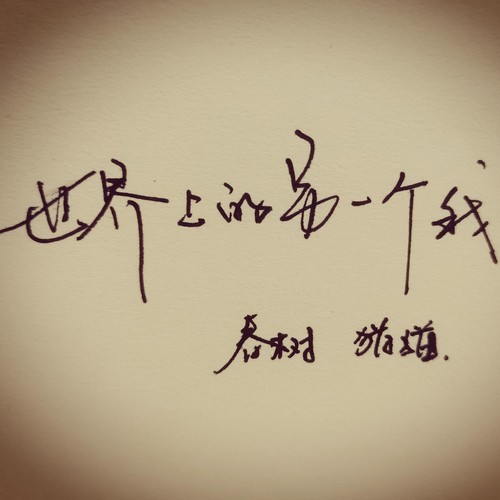 世界上的另一个我
春树